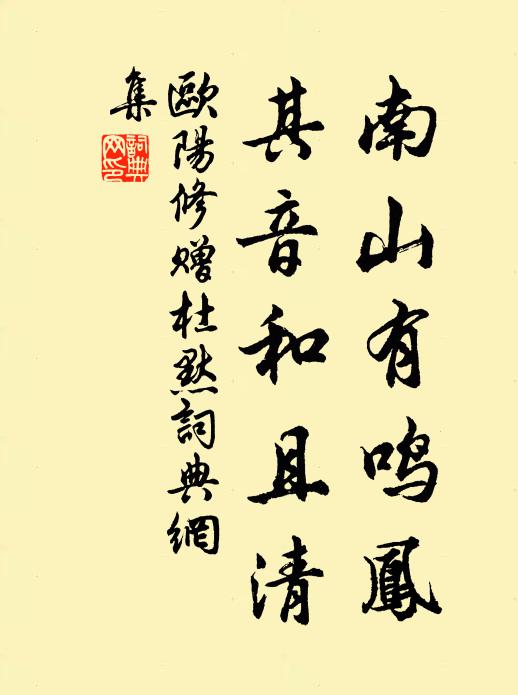 南山有鸣鳳
其音和且清
歐陽修贈杜默詞典網
集
詞典
网印